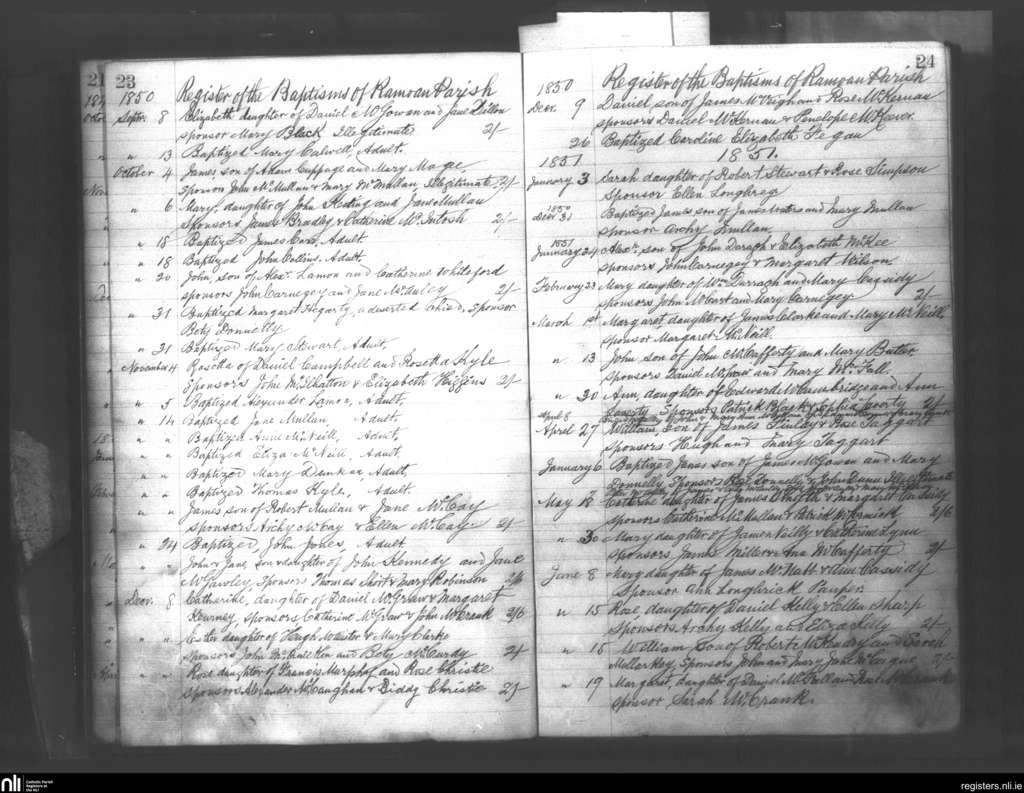 23
1850 Register of the Baptisms of Ramoan Parish
Septr. 8 Elizabeth daughter of Daniel McGowan and Jane Dillon
sponsor Mary Black Illegitimate 2/-
" " 13 Baptized Mary Calwell, Adult.
October 4 James son of Adam Cuppage and Mary Magee,
Sponsors John McMullan & Mary McMullan Illegitimate 2/-
" 6 Mary, daughter of John Keating and Jane Mullan
Sponsors James Bradley & Catherine McIntosh 2/-
" 18 Baptized James Cass, Adult.
" 18 Baptized John Collins, Adult.
" 20 John, son of Alexr. Lamon and Catherine Whiteford
sponsors John Carnegey and Jane McAuley 2/-
" 31 Baptized Margaret Hegarty, a deserted child, Sponsor
Betty Donnelly
" 31 Baptized Mary Stewart, Adult,
November 4 Rosetta of Daniel Campbell and Rosetta Kyle
Sponsors John McIlhatton & Elizabeth Higgins 2/-
" 5 Baptized Alexander Lamon, Adult,
" 14 Baptized Jane Mullan, Adult.
" " Baptized Anne McNeill, Adult,
" " Baptized Eliza McNeill, Adult,
" " Baptized Mary Duncan, Adult,
" " Baptized Thomas Kyle, Adult.
" " James son of Robert Mullan & Jane McCoy
sponsors Archy McCay & Ellen McCay 2/-
" 24 Baptized, John Jones, Adult
" " John & Jane, son & daughter of John Kennedy and Jane
McGawley, Sponsors Thomas Short & Mary Robinson 2/6
Decr. 8 Catherine, daughter of Daniel McGraw & Margaret
Kearney, Sponsors Catherine McGraw & John McCrank 2/6
" " daughter of Hugh McAuster & Mary Clarke
Sponsors John and Betty McCurdy 2/-
" " Rose daughter of Francis Murphy and Rose Christie
Sponsors Alexander McCaughan & Biddy Christie 2/-
24
1850 Register of the Baptisms of Ramoan Parish
Decr. 9 Daniel, son of James McVeigh and Rose McKernan
sponsors Daniel McKernan & Penelope McKaver.
26 Baptized Caroline Elizabeth Fegan
1851 1851.
January 3 Sarah daughter of Robert Stewart & Rose Simpson
Sponsor Ellen Longhrey
1850
Decr 31 Baptized James son of James and Mary Mullan
sponsor Archy Mullan
1851
January 24 Alexr. son of John Daragh & Elizabeth McKee
sponsors John Carnegey & Margaret Wilson
February 23 Mary daughter of Wm. Darragh and Mary Cassidy
sponsors John McCart and Mary Carnegey 2/-
March 1st Margaret daughter of James Clarke and Mary McNeill,
sponsor Margaret McNeill.
" 13 John son of John McCafferty and Mary Butler
Sponsors Daniel and Mary McFall.
" 30 Ann, daughter of Edward and Ann
Sponsors Patrick Black & Sophia 2/-
April 8
April 27 William, Son of James Finlay & Rose Taggart
Sponsors Hugh and Mary Taggart
January 6 Baptized James son of James McGowan and Mary
Donnelly Sponsors Rose Donnelly & John Quinn
May 18 Catherine daughter of James & Margaret
sponsors Catherine McMullan & Patrick McCormick 2/6
" 30 Mary daughter of James Neilly & Catherine Lynn
sponsors James Miller & Ann McCafferty 2/-
June 8 Mary daughter of James McNabb & Ann Cassidy
Sponsor Ann Longhrick Pauper.
" 15 Rose, daughter of Daniel Kelly & Ellen Sharp
Sponsors Archy Kelly and Eliza Kelly 2/-
" 15 William Son of Robert McKendry and Sarah
Mullarkey, Sponsors John and Mary Jane 2/-
" 19 Margaret, daughter of Daniel and McCrank
sponsor Sarah McCrank.
nli Catholic Parish Registers at the NLI
registers.nli.ie